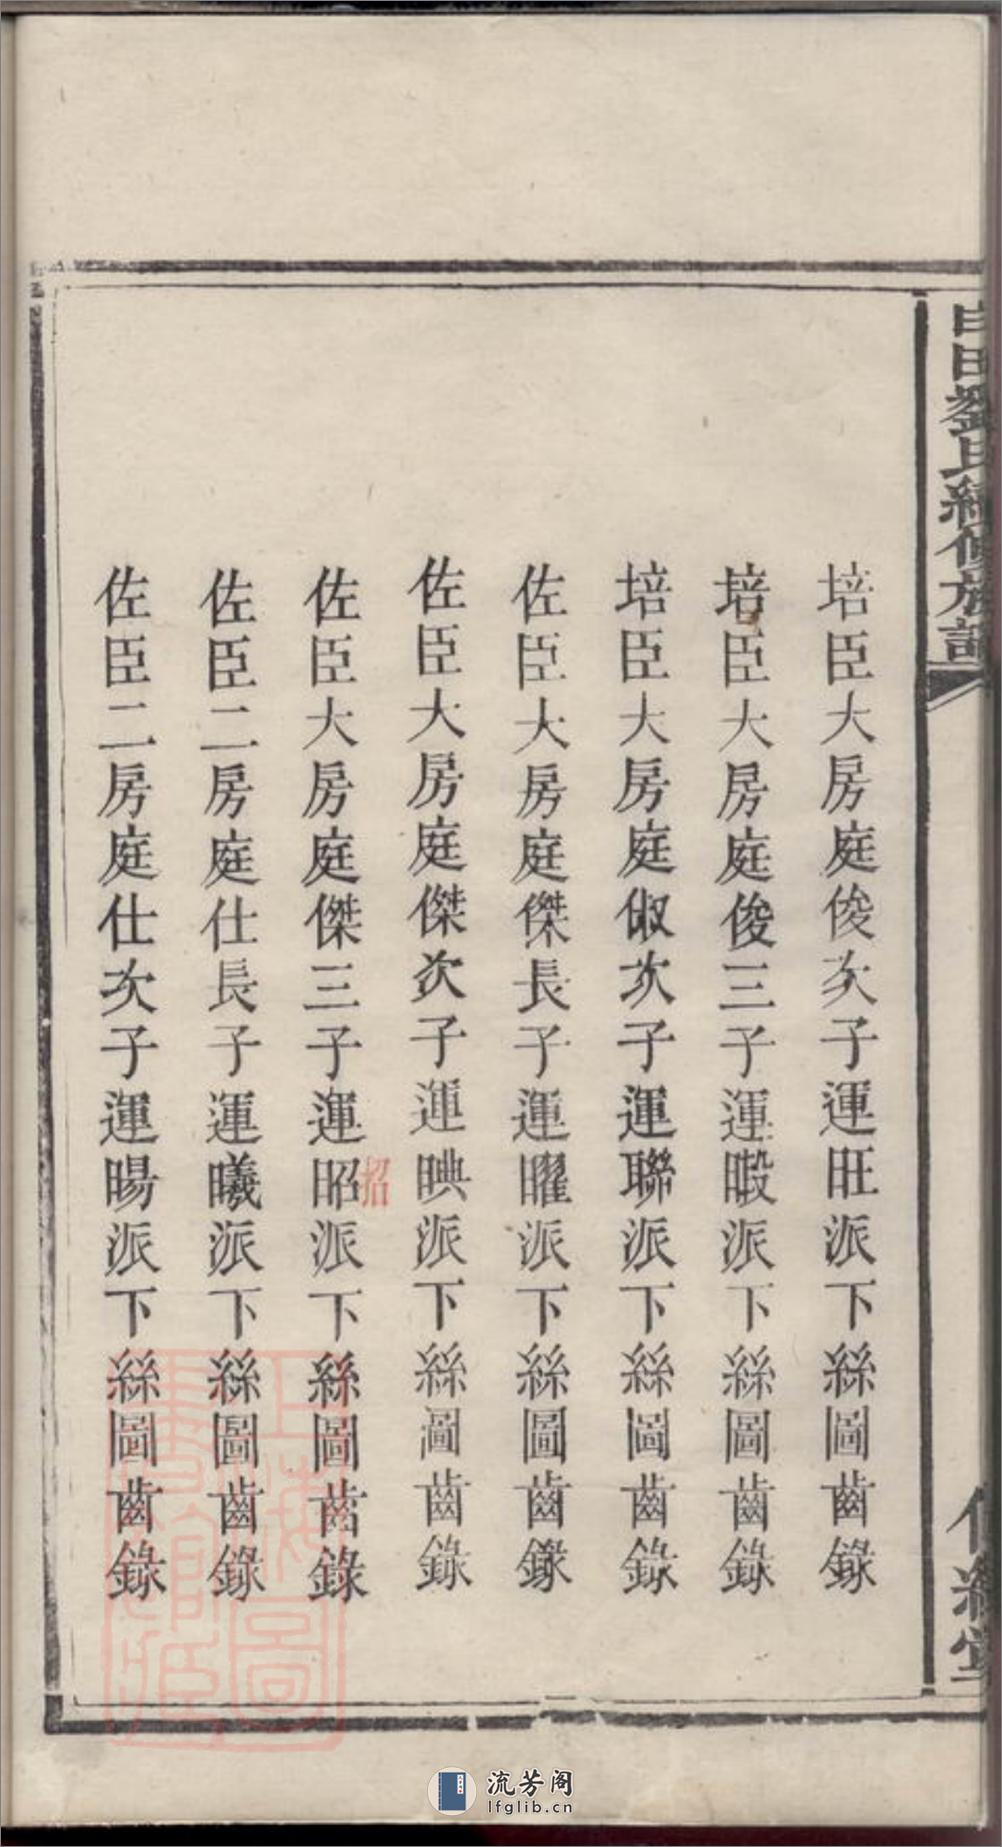 白田劉氏續修族譜
培臣大房庭俊次子運旺派下絲圖齒錄
培臣大房庭俊三子運暇派下絲圖齒錄
培臣大房庭俶次子運聯派下絲圖齒錄
佐臣大房庭傑長子運曜派下絲圖齒錄
佐臣大房庭傑次子運晪派下絲圖齒錄
佐臣大房庭傑三子運昭派下絲圖齒錄
招
佐臣二房庭仕長子運曦派下絲圖齒錄
佐臣二房庭仕次子運暘派下絲圖齒錄
上海圖書館藏
流芳阁
lfglib.cn